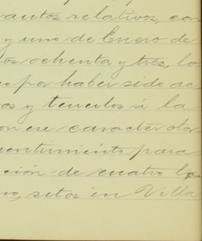 autos relativos, con
y uno de Enero de
tos ochenta y tres, lo
por haber sido ac
os y tenerlos á la
on ese caracter otor
sentimiento para
ción de cuatro lo
no, sitos en Villa